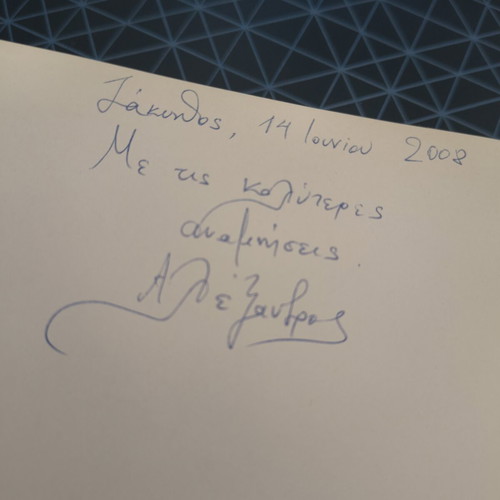 Ζάκυνθος, 14 Ιουνίου 2008
Με τις καλύτερες
αναμνήσεις.
Αλέξανδρος